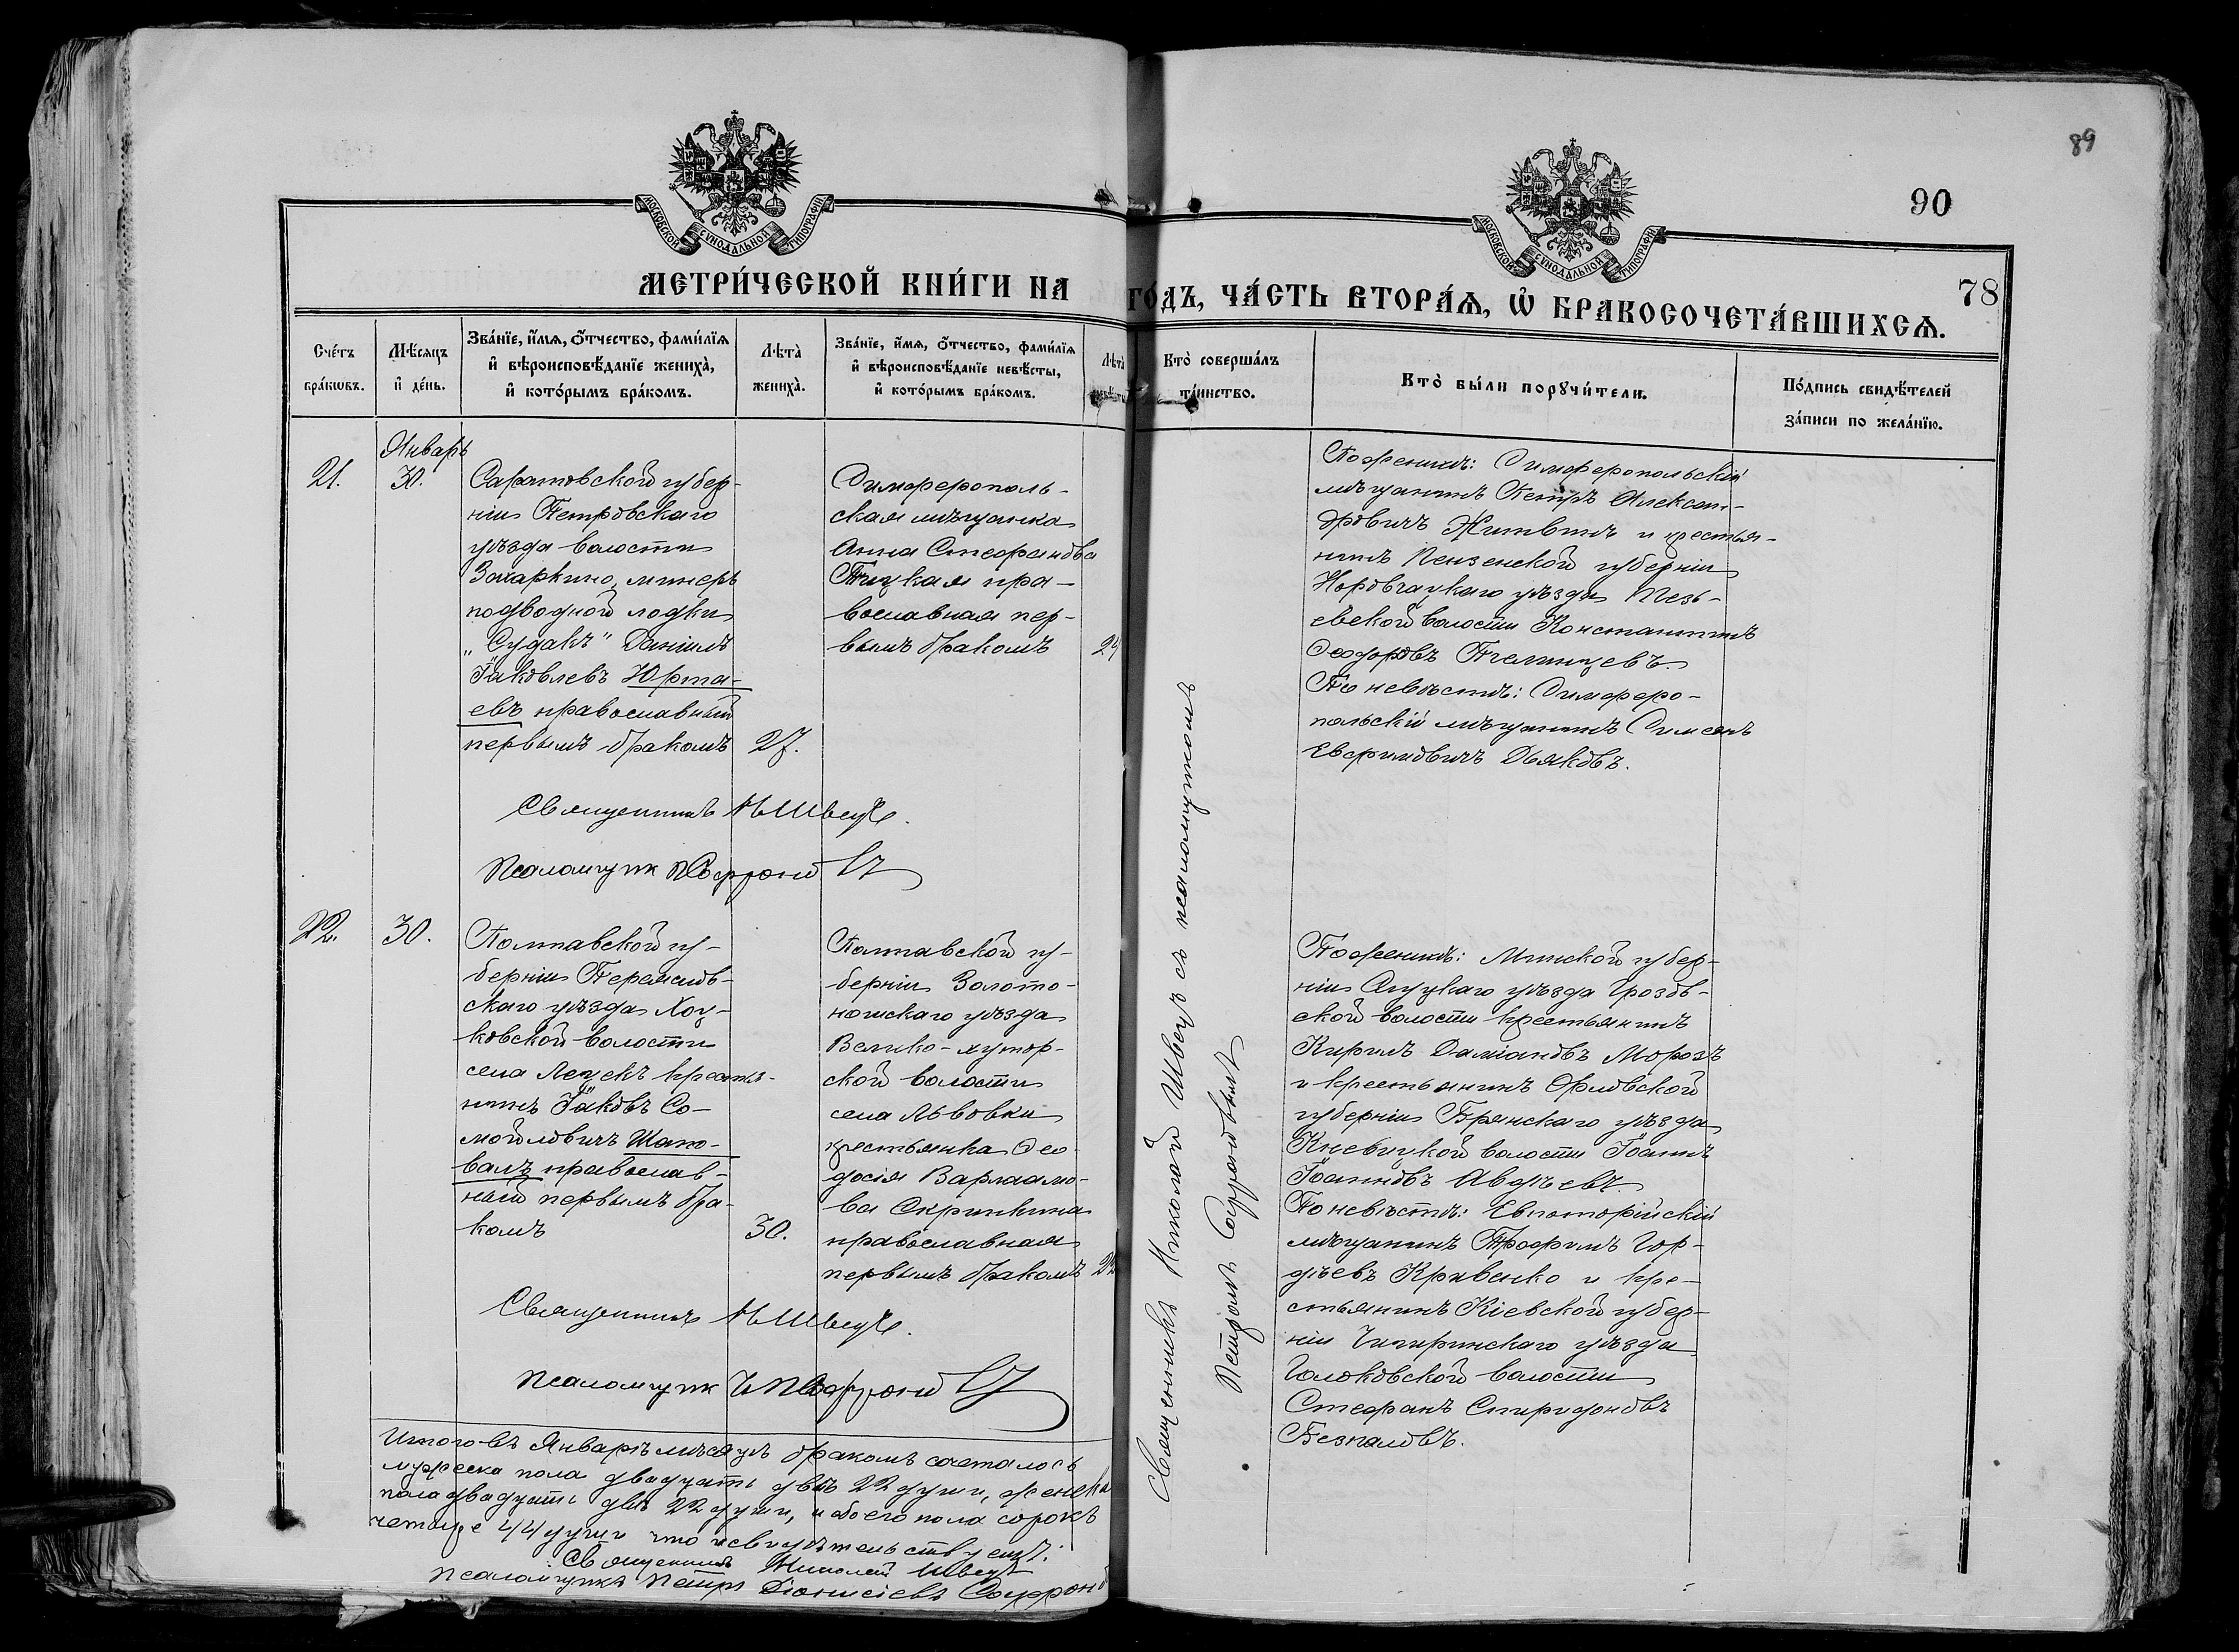 89
90
78
МОСКОВСКОЙ СѴНОДАЛЬНОЙ ТИПОГРАФІИ
МОСКОВСКОЙ СѴНОДАЛЬНОЙ ТИПОГРАФІИ
МЕТРИ́ЧЕСКОЙ КНИ́ГИ НА ГО́ДЪ, ЧА́СТЬ ВТОРА́Ѧ, Ѡ҆ БРАКОСОЧЕТА́ВШИХСѦ.
Сче́тъ
бра́кѡвъ.
Мѣ́сяцъ
и҆ де́нь.
Зва́нїе, и҆́мѧ, ѻ҆́тчество, фами́лїѧ
и҆ вѣроисповѣ́данїе жениха̀,
и҆ кото́рымъ бра́комъ.
Лѣта̀
жениха̀.
Зва́нїе, и҆́мѧ, ѻ҆́тчество, фами́лїѧ
и҆ вѣроисповѣ́данїе невѣ́сты,
и҆ кото́рымъ бра́комъ.
Лѣта̀
Кто̀ соверша́лъ
та́инство.
Кто̀ бы́ли порꙋчи́тели.
По́дпись свидѣ́телей
за́писи по жела́нїю.
21.
Январь
30.
Саратовской губер-
ніи Петровскаго
уѣзда волости
Захаркино, минеръ
подводной лодки
„Судакъ" Даніилъ
Іаковлевъ Юрта-
евъ православный
первымъ бракомъ
27.
Симферополь-
ская мѣщанка
Анна Стефанова
пра-
вославная пер-
вымъ бракомъ
По женихѣ: Симферопольскій
мѣщанинъ Петръ Алексан-
дровичъ и крестья-
нинъ Пензенской губерніи
уѣзда
волости Константинъ
Ѳеодоровъ
По невѣстѣ: Симферо-
польскій мѣщанинъ Симеонъ
Евфимовичъ Дьяковъ.
Священникъ Н Швецъ.
Псаломщик П Софронов
22.
30.
Полтавской гу-
берніи Переяслав-
скаго уѣзда Хоц-
ковской волости
села крестья-
нинъ Іаковъ Са-
мойловичъ Шапо-
валъ православ-
ный первымъ бра-
комъ
30.
Полтавской гу-
берніи Золото-
ношскаго уѣзда
Велико-хутор-
ской волости
села Львовки
крестьянка Ѳео-
досія Варлаамо-
ва Скрипкина
православная
первымъ бракомъ
По женихѣ: Минской губер-
ніи Слуцкаго уѣзда Грозов-
ской волости крестьянинъ
Кирилъ Даміановъ Морозъ
и крестьянинъ Орловской
губерніи Брянскаго уѣзда
волости Іоаннъ
Іоанновъ Авдѣевъ.
По невѣстѣ: Евпаторійскій
мѣщанинъ Трофимъ Гор-
дѣевъ Кривенко и кре-
стьянинъ Кіевской губер-
ніи Чигиринскаго уѣзда
волости
Стефанъ Спиридоновъ
Безпаловъ.
Священникъ Николай Швецъ съ псаломщикомъ
Петромъ Софроновымъ
Священникъ Н Швецъ.
Псаломщик П Софронов
Итого въ Январѣ мѣсяцѣ бракомъ сочеталось
мужеска пола двадцать двѣ 22 души, женска
пола двадцать двѣ 22 души, и обоего пола сорокъ
четыре 44 души что и свидѣтельствуемъ:
Священникъ Николай Швецъ
Псаломщикъ Петръ Діонисіевъ Софронов